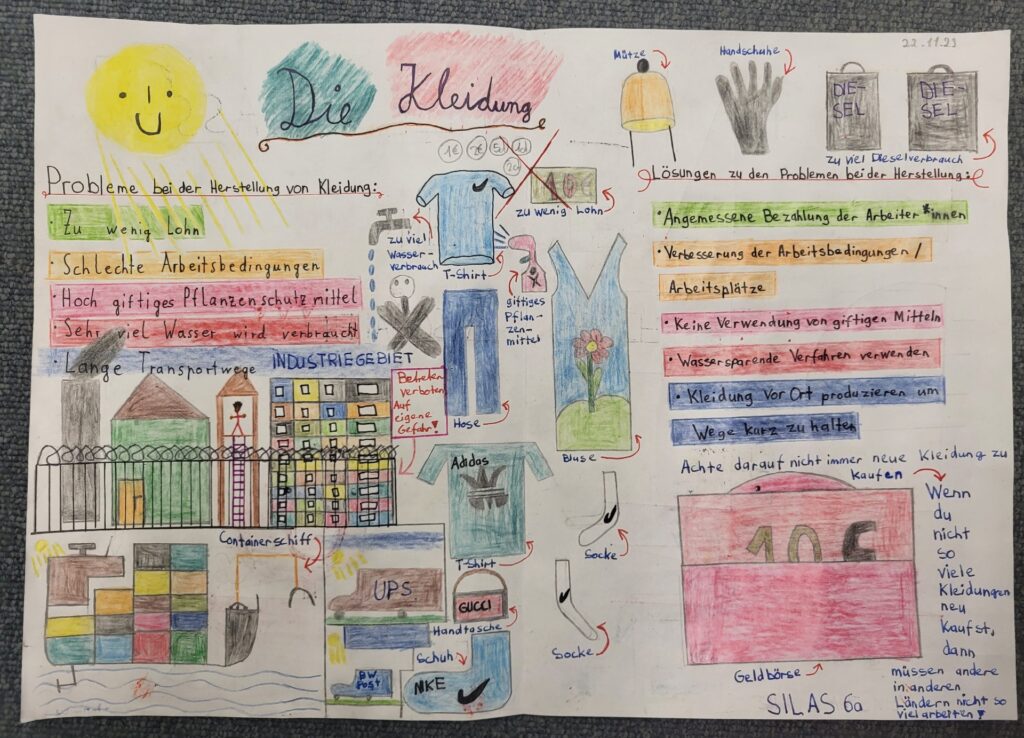 22.11.23
Die Kleidung
Mütze
Handschuhe
DIE-
SEL
DIE-
SEL
zu viel Dieselverbrauch
1€ 2€
10€
zu wenig Lohn
Probleme bei der Herstellung von Kleidung:
· Zu wenig Lohn
· Schlechte Arbeitsbedingungen
· Hoch giftiges Pflanzenschutzmittel
· Sehr viel Wasser wird verbraucht
· Lange Transportwege
INDUSTRIEGEBIET
Betreten
verboten
Auf
eigene
Gefahr!
zu viel
Wasser-
verbrauch
T-Shirt
giftiges
Pflan-
zen-
mittel
Hose
Bluse
Adidas
T-Shirt
Socke
Socke
GUCCI
Handtasche
Schuh
NIKE
Containerschiff
UPS
BW
POST
Lösungen zu den Problemen bei der Herstellung:
· Angemessene Bezahlung der Arbeiter*innen
· Verbesserung der Arbeitsbedingungen /
Arbeitsplätze
· Keine Verwendung von giftigen Mitteln
· Wassersparende Verfahren verwenden
· Kleidung Vor Ort produzieren um
Wege kurz zu halten
Achte darauf nicht immer neue Kleidung zu
kaufen
Wenn
du
nicht
so
viele
Kleidungen
neu
kaufst,
dann
müssen andere
in anderen
Ländern nicht so
viel arbeiten!
10€
Geldbörse
SILAS 6a